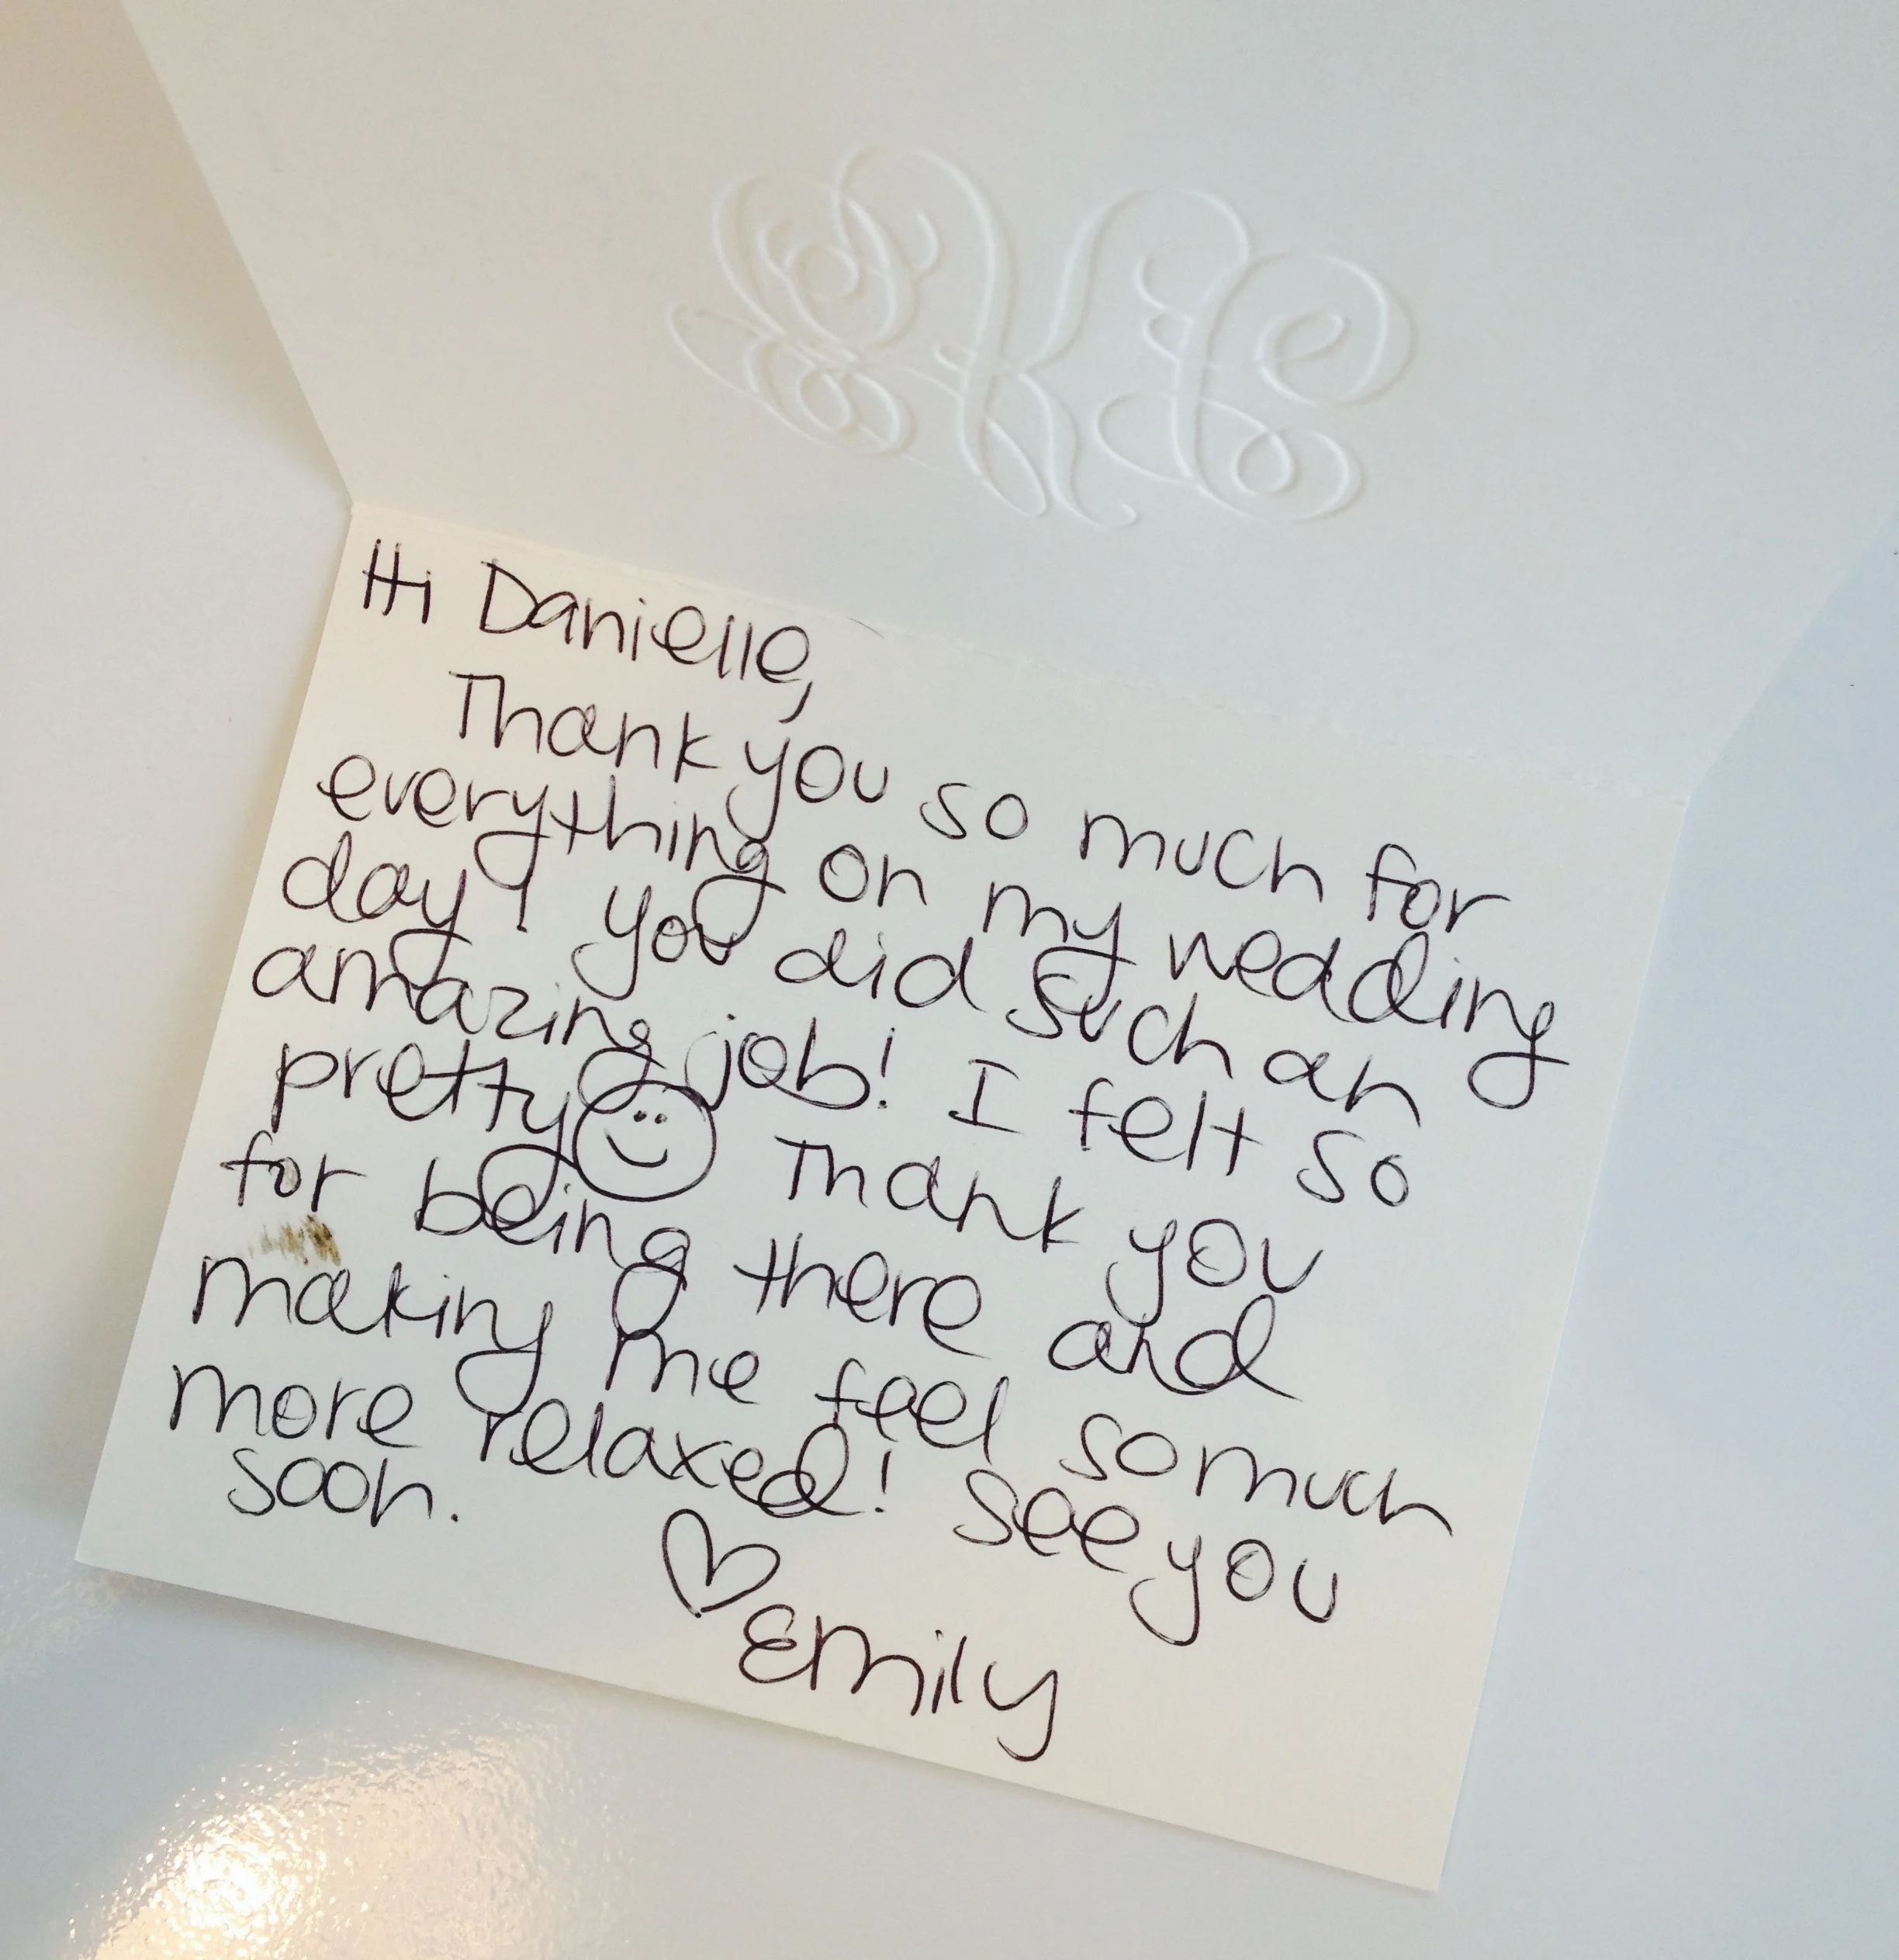 Hi Danielle,
Thank you so much for
everything on my wedding
day! you did such an
amazing job! I felt so
pretty Thank you
for being there and
making me feel so much
more relaxed! See you
soon.
Emily